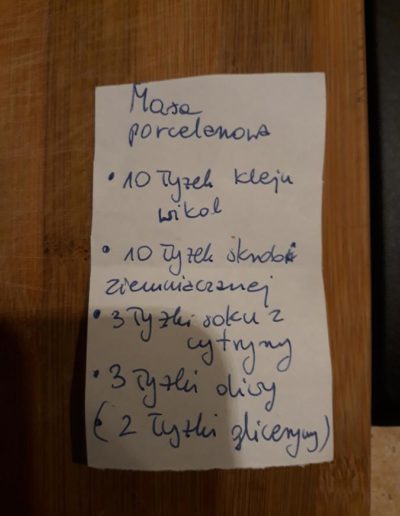 Masa
porcelanowa
• 10 łyżek kleju
wikol
• 10 łyżek skrobi
ziemniaczanej
• 3 łyżki soku z
cytryny
• 3 łyżki oliwy
(• 2 łyżki gliceryny)